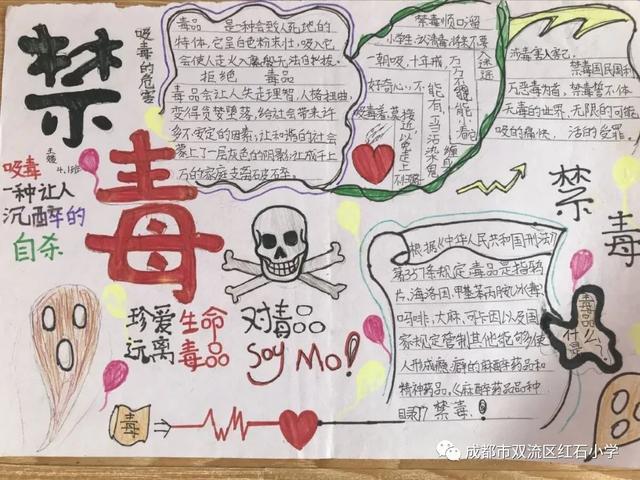 禁
毒
吸毒的危害
王媛
4.1班
吸毒
一种让人
沉醉的
自杀
毒品 是一种会致人死地的
特体,它呈白色粉末壮,吸入它
会使人走火入魔般无法自拔。
拒绝 毒品
毒品会让人失走理智,人格扭曲,
变得贫梦堕落,给社会带来许
多不安定的因素,让和谐的社会
蒙上了一层灰色的阴影,让成千上
万的家庭支离破不卒。
禁毒顺口溜
小学生
一朝吸,十年戒,
好奇心,不
能有,
涉毒害人害己,
禁毒国民国利
万恶毒为首,禁毒誓不休
无毒的世界,无限的可能
吸的痛快,活的受罪。
禁
毒
珍爱生命
远离毒品
对毒品
Soy Mo!
根据《中华人民共和国刑法》
第357条规定毒品是指鸦
片,海洛因,甲基苯丙胺(冰毒)
吗啡,大麻,可卡因以及国
家规定管制其他能够使
人形成瘾癖的麻醉药品和
精神药品。《麻醉药品品种
目录》禁毒
毒品
是什么?
毒
成都市双流区红石小学